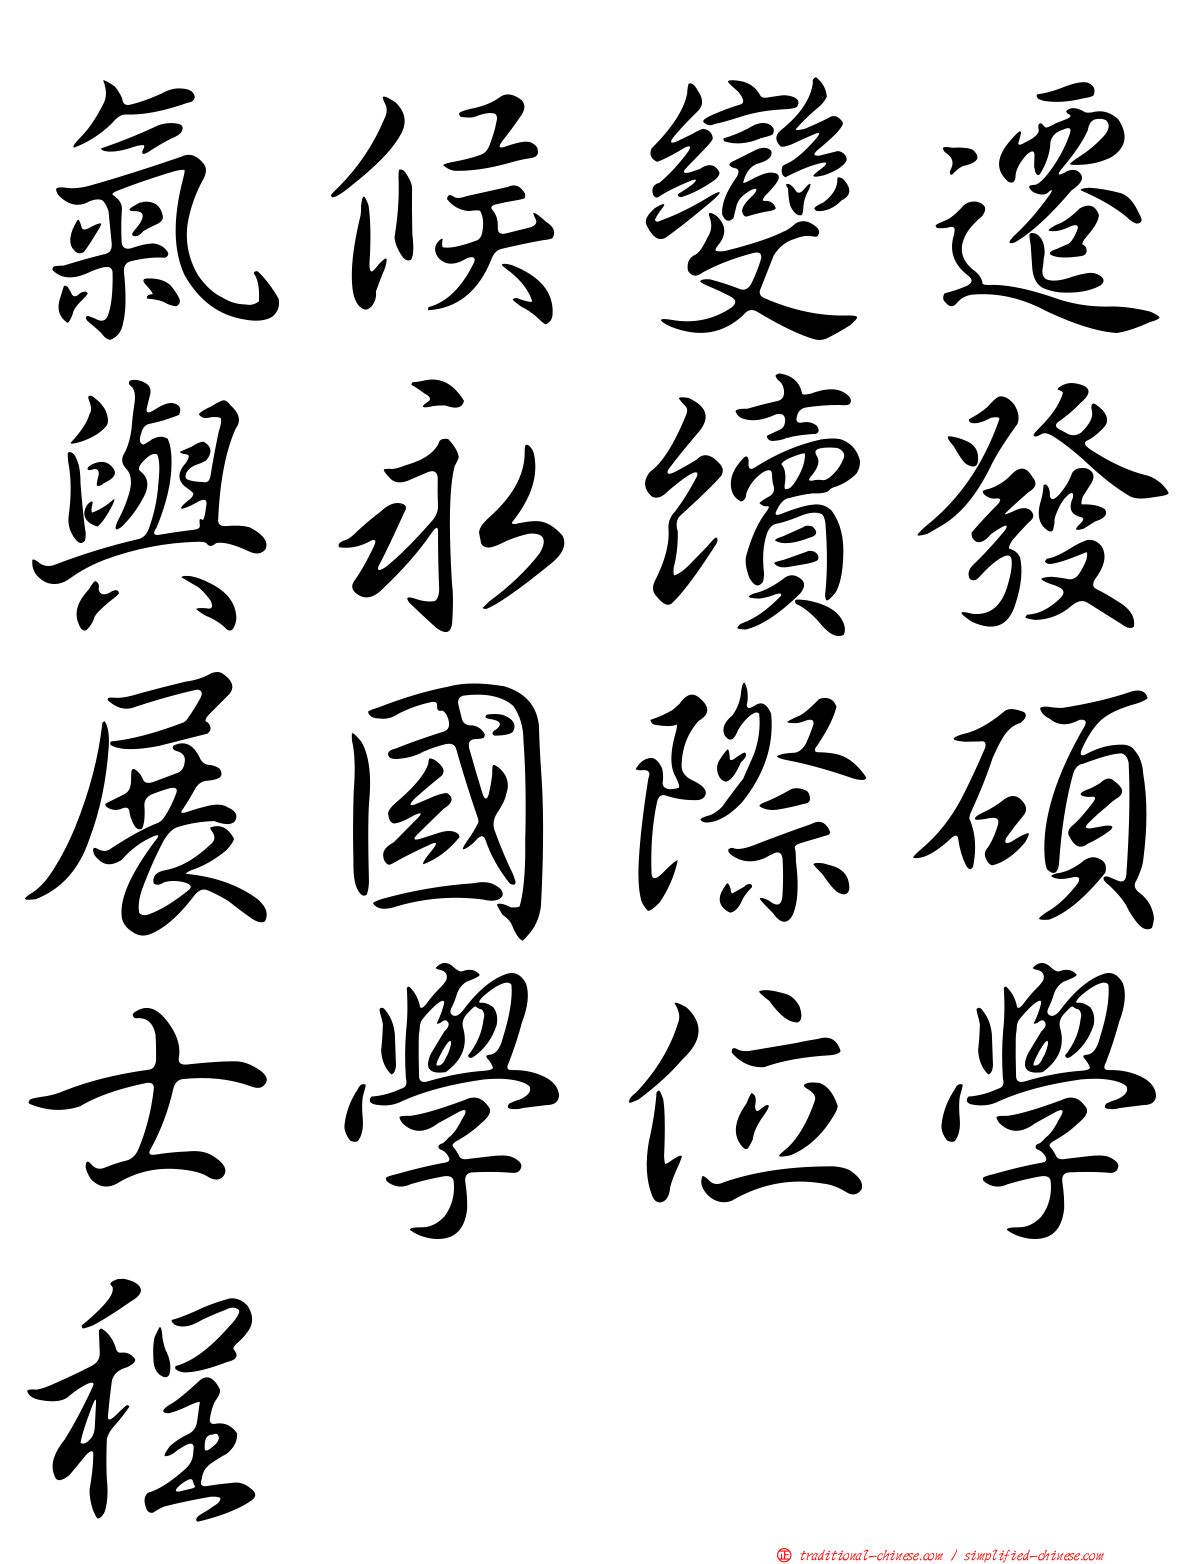 氣候變遷
與永續發
展國際碩
士學位學
程
正 traditional-chinese.com / simplified-chinese.com